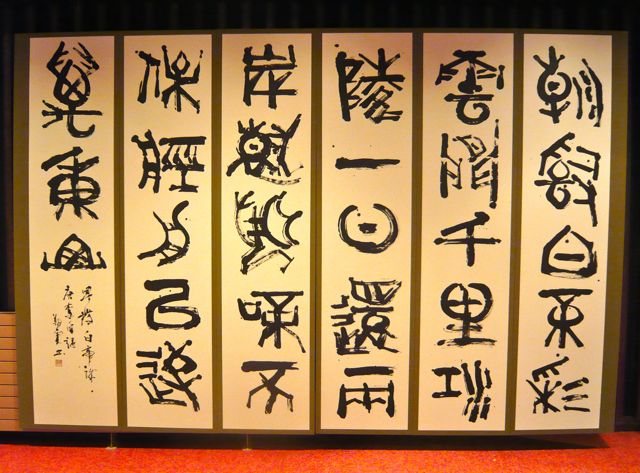 朝辭白帝彩
雲間千里江
陵一日還兩
岸猿聲啼不
住輕舟已過
萬重山
早發白帝城
唐李白詩